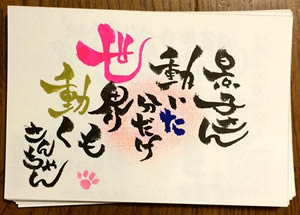 景子さん
動いた
分だけ
世界も
動く
さんちゃん